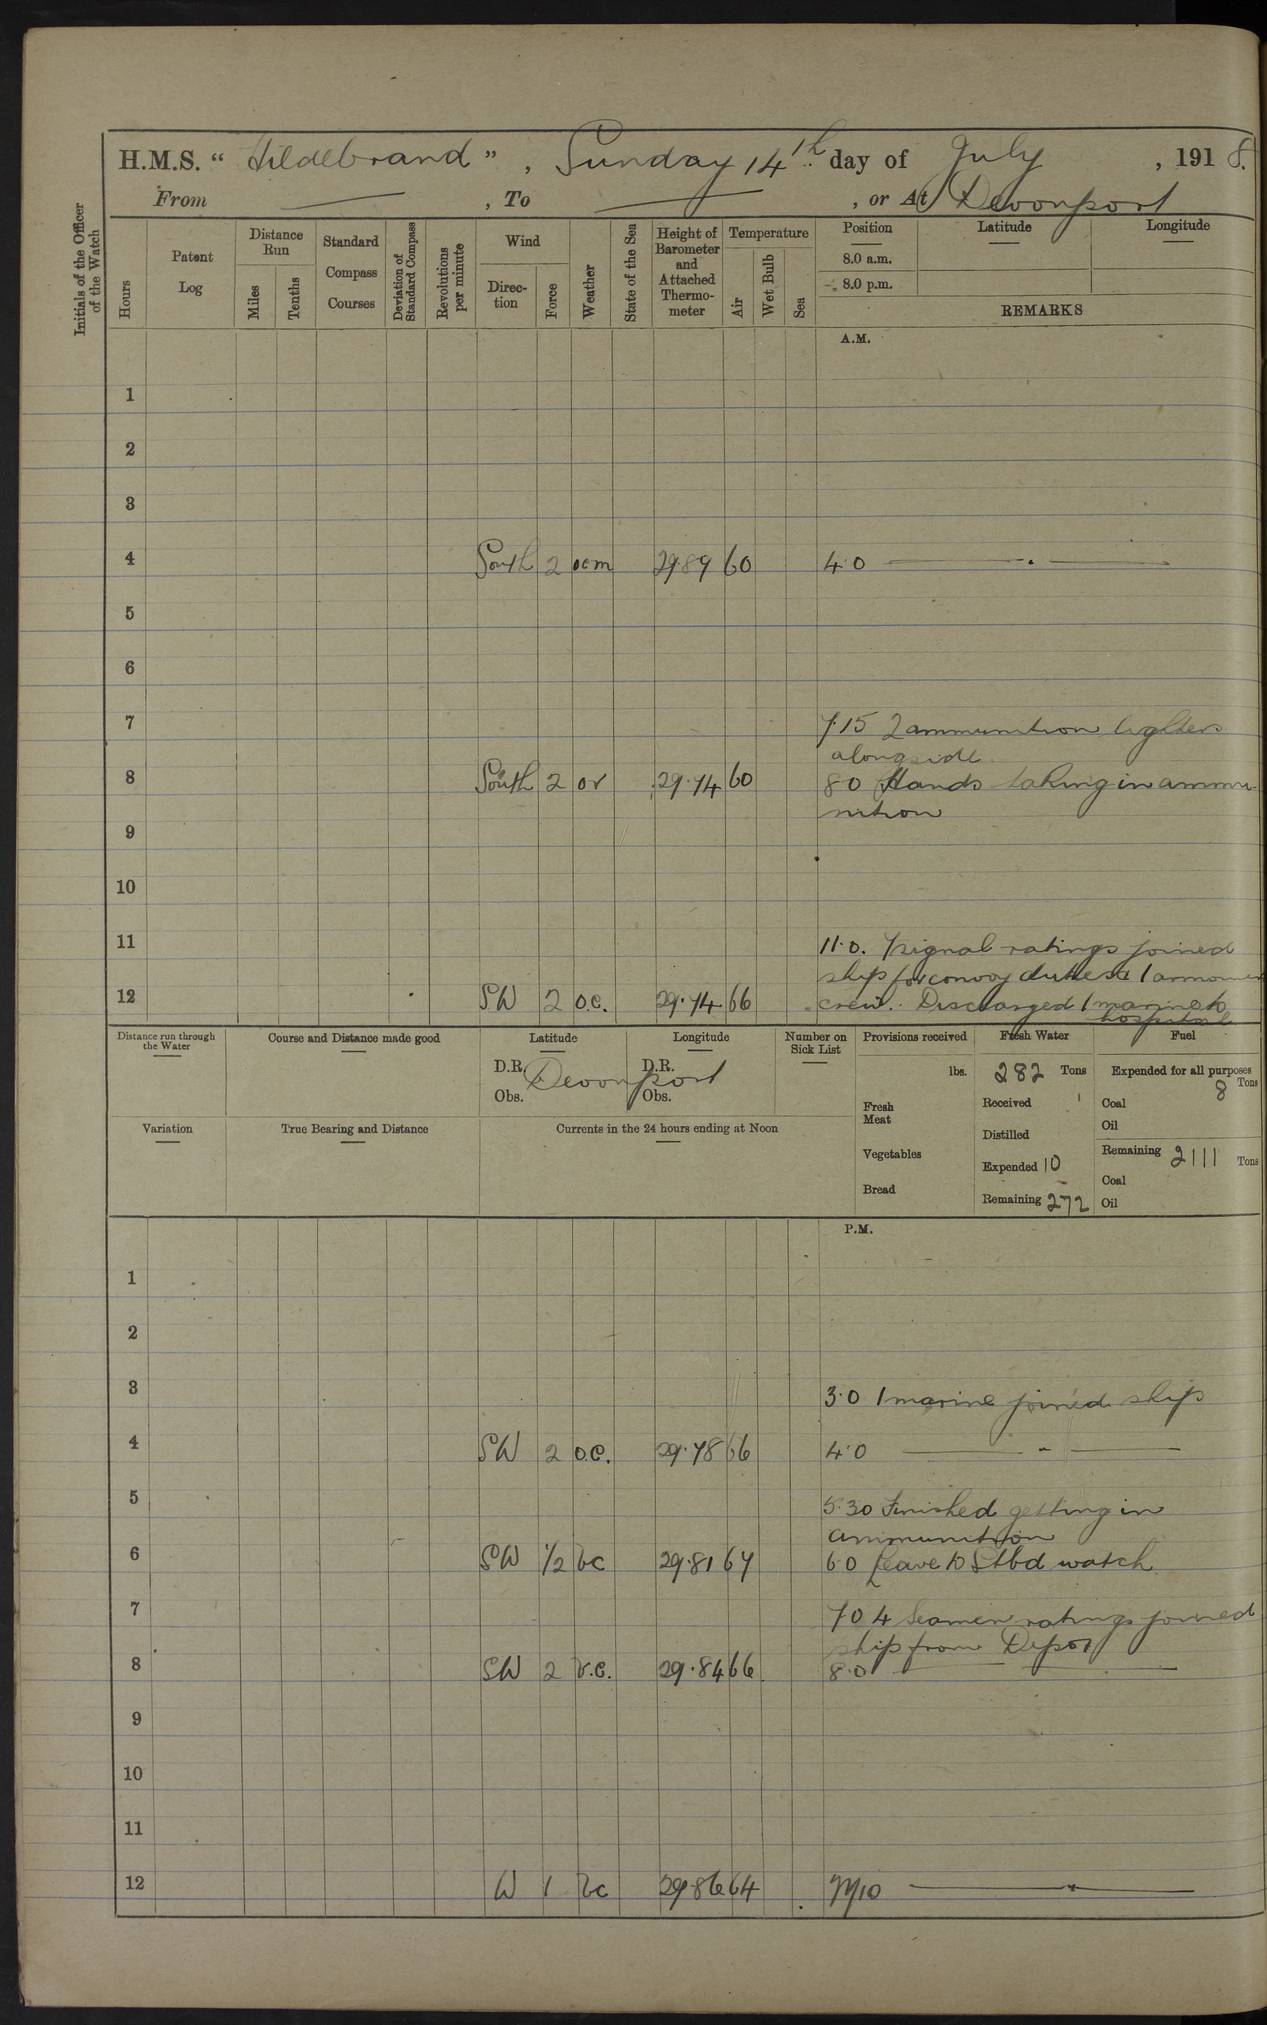 H.M.S. “ Hildebrand ” , Sunday 14th day of July , 1918.
From — , To — , or At Devonport
Initials of the Officer of the Watch
Hours
Patent Log
Distance Run
Miles
Tenths
Standard Compass Courses
Deviation of Standard Compass
Revolutions per minute
Wind
Direction
Force
Weather
State of the Sea
Height of Barometer and Attached Thermometer
Temperature
Air
Wet Bulb
Sea
Position
8.0 a.m.
8.0 p.m.
Latitude
Longitude
REMARKS
A.M.
1
2
3
4 South 2 ocm 29.89 60 4.0 — " —
5
6
7 7.15 2 ammunition lighters
alongside
8 South 2 or 29.74 60 8.0 Hands taking in ammu-
nition
9
10
11 11.0. 7 signal ratings joined
ship for convoy duties & 1 armourer
12 SW 2 o.c. 29.74 66 crew. Discharged 1 marine to
hospital
Distance run through the Water
Course and Distance made good
Latitude
D.R. Devonport
Obs.
Longitude
D.R.
Obs.
Number on Sick List
Provisions received
lbs.
Fresh Meat
Vegetables
Bread
Fresh Water
282 Tons
Received
Distilled
Expended 10
Remaining 272
Fuel
Expended for all purposes
8 Tons
Coal
Oil
Remaining 2111 Tons
Coal
Oil
Variation
True Bearing and Distance
Currents in the 24 hours ending at Noon
P.M.
1
2
3 3.0 1 marine joined ship
4 SW 2 o.c. 29.78 66 4.0 — " —
5 5.30 Finished getting in
ammunition
6 SW 1/2 bc 29.81 67 6.0 Leave to Stbd watch
7 7.0 4 Seamen ratings joined
ship from Depot
8 SW 2 b.c. 29.84 66 8.0 —
9
10
11
12 W 1 bc 29.86 64 — " —